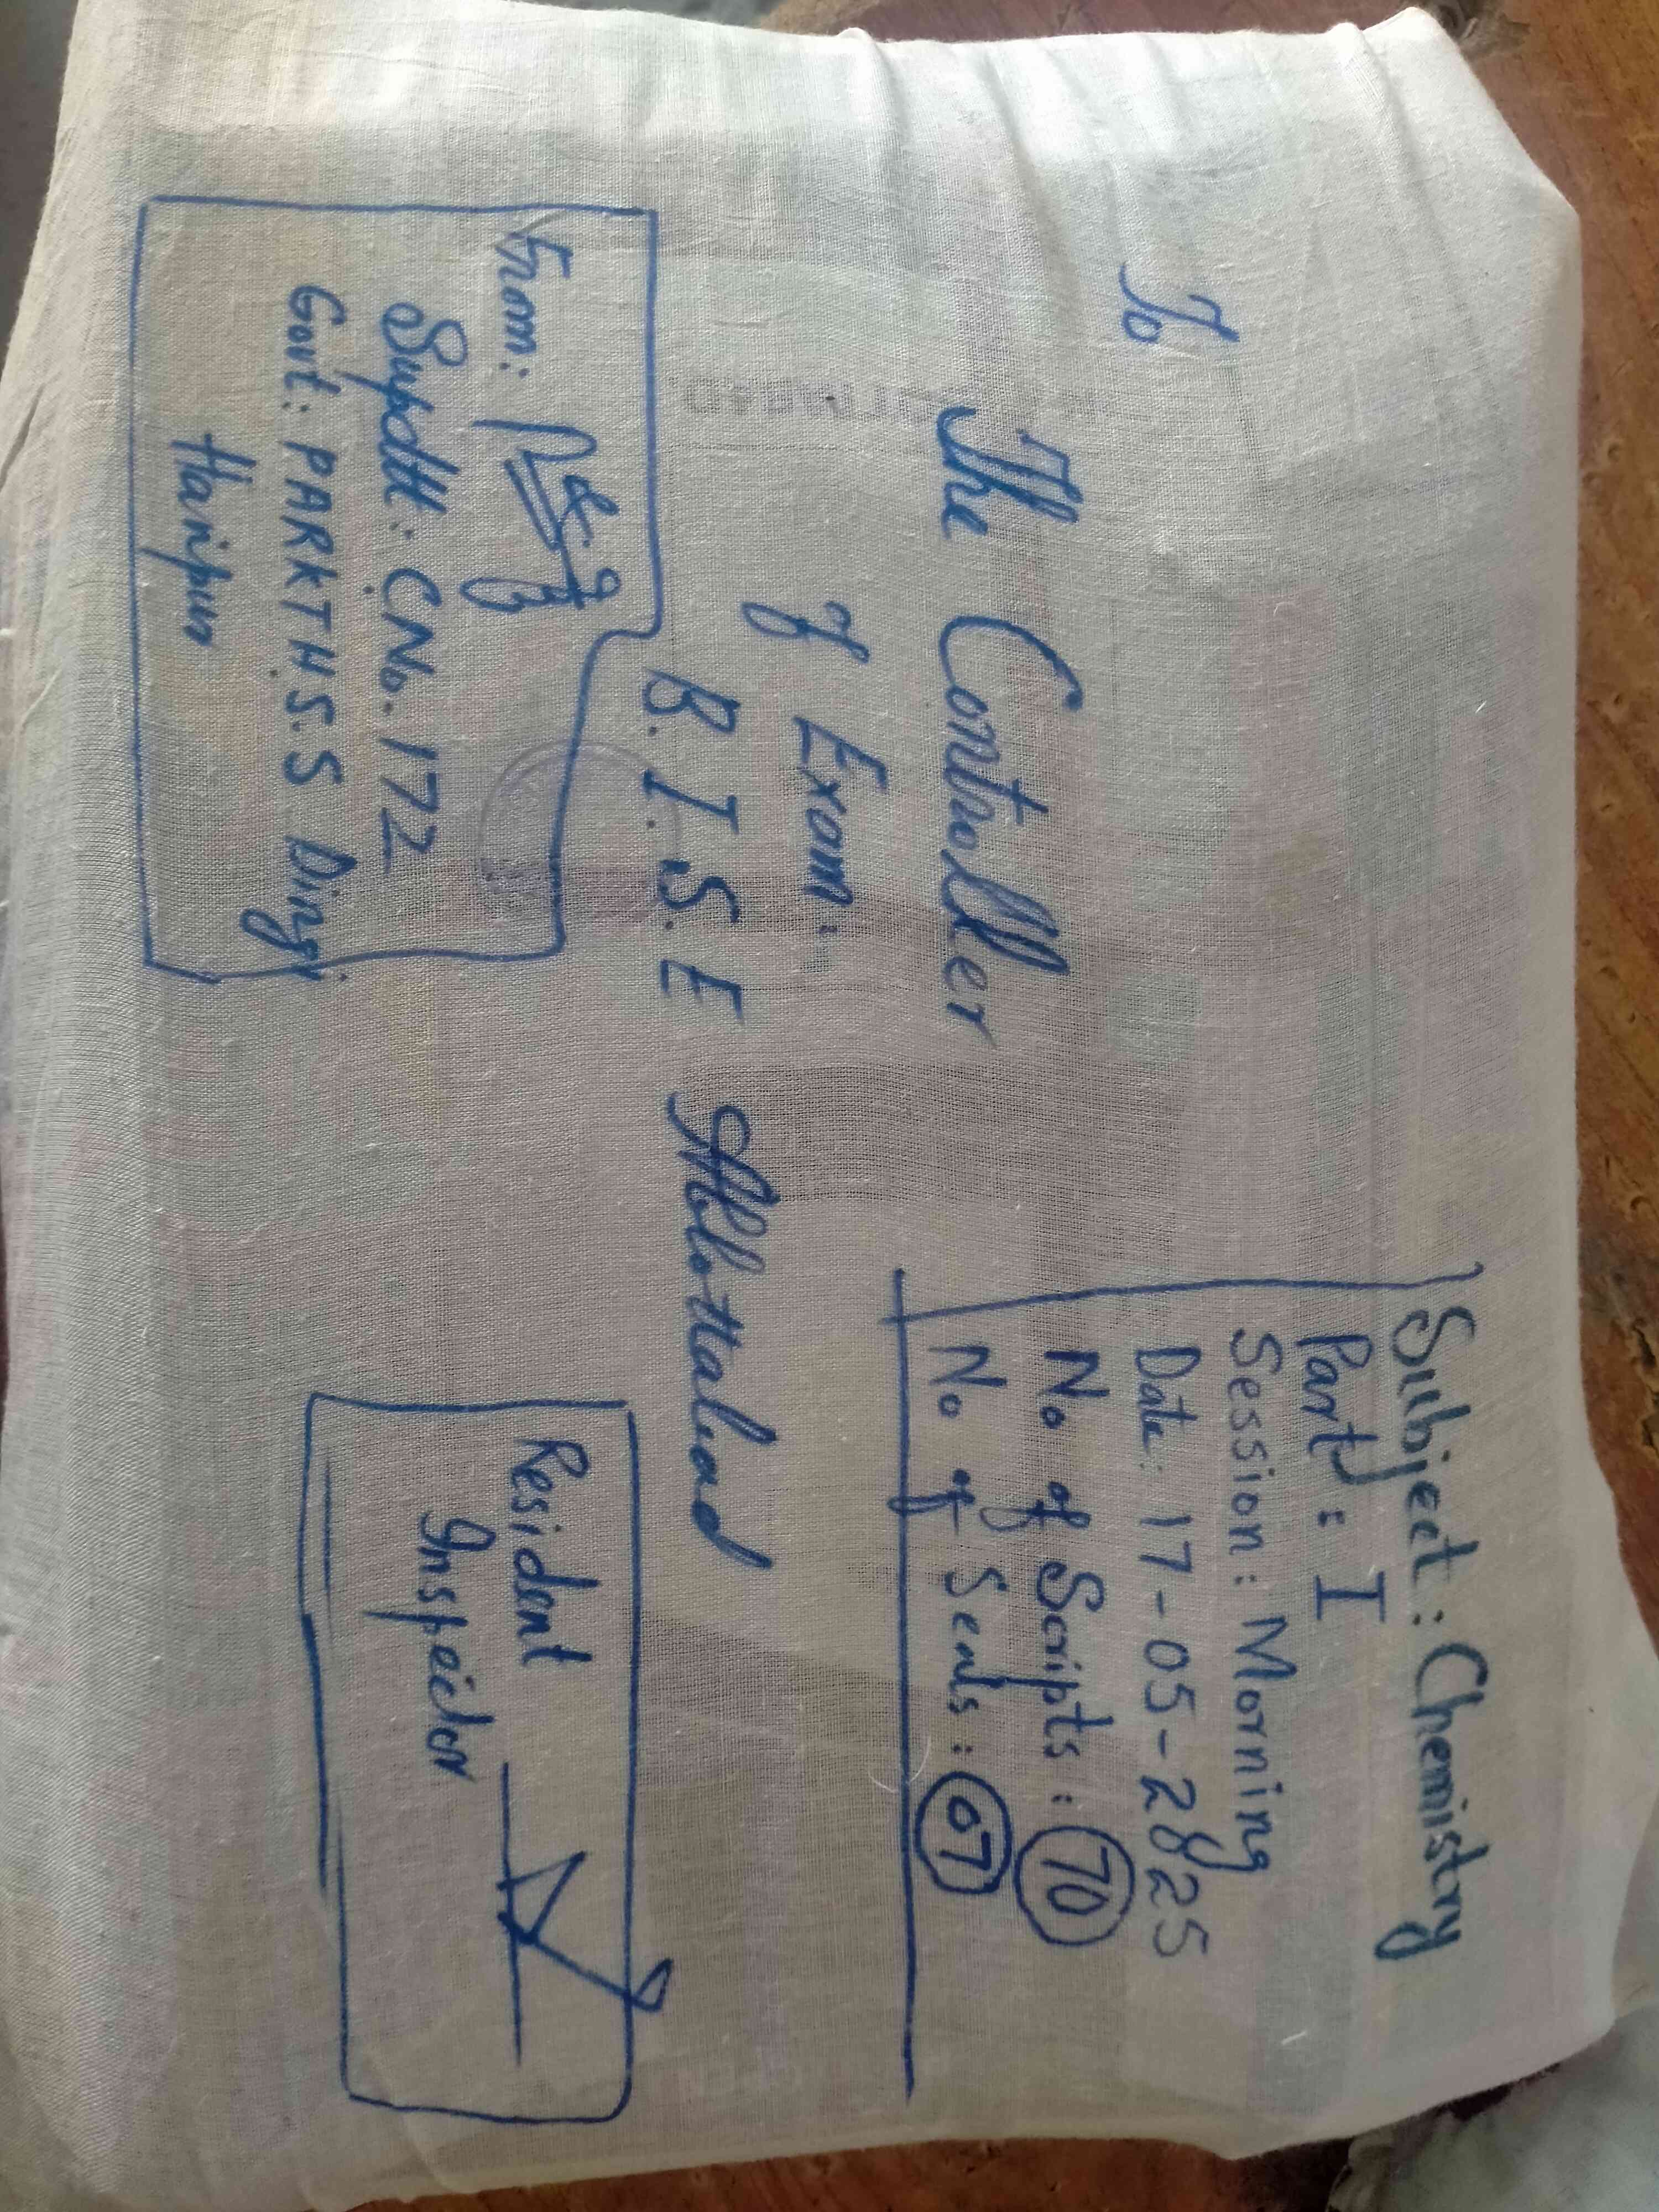 Subject: Chemistry
Part: I
Session: Morning
Date: 17-05-2025
No of Scripts: 70
No of Seals: 07
To
The Controller
of Exam:
B.I.S.E Abbottabad
From:
Supdtt: CNo. 172
Govt: PARKTH.S.S Dingi
Haripur
Resident
Inspector